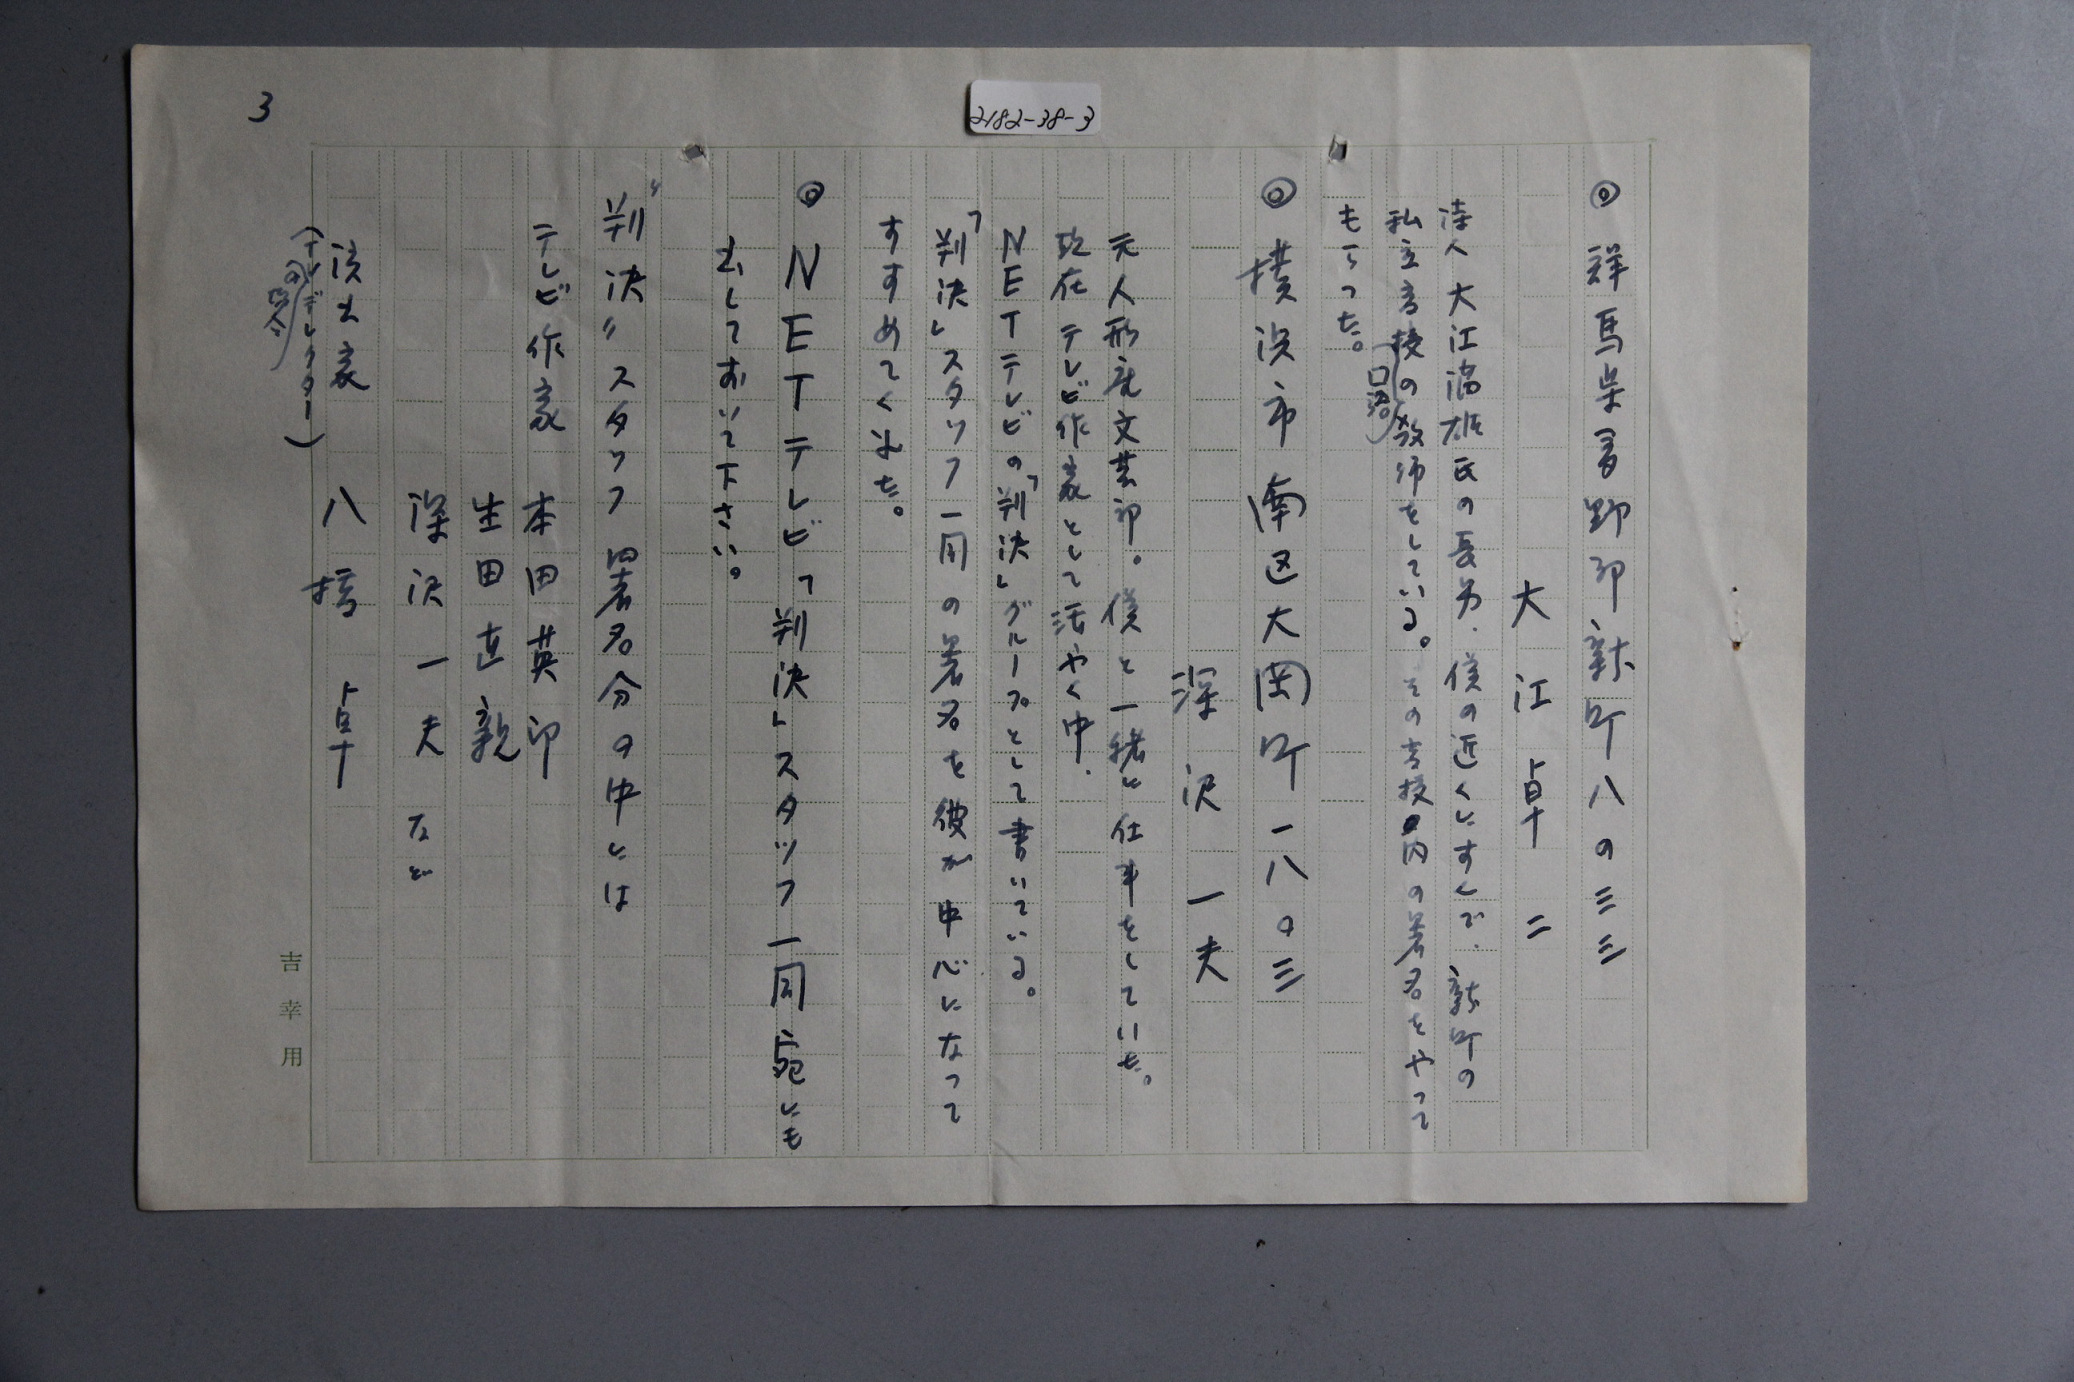 3
2182-38-3
◎ 群馬県多野郡新町八の三三
大江卓二
詩人大江満雄氏の長男、僕の近くにすんで、新町の
私立高校の教師をしている。その高校内の署名をやって
もらった。
◎ 横浜市南区大岡町一八〇三
深沢一夫
元人形座文芸部。僕と一緒に仕事をしていた。
現在テレビ作家として活やく中、
NETテレビの「判決」グループとして書いている。
「判決」スタッフ一同の署名を彼が中心になって
すすめてくれた。
◎ NETテレビ「判決」スタッフ一同宛にも
出しておいて下さい。
"判決" スタッフ署名分の中には
テレビ作家 本田英郎
生田直親
深沢一夫 など
演出家 八橋卓
(テレビデレクター)
吉幸用